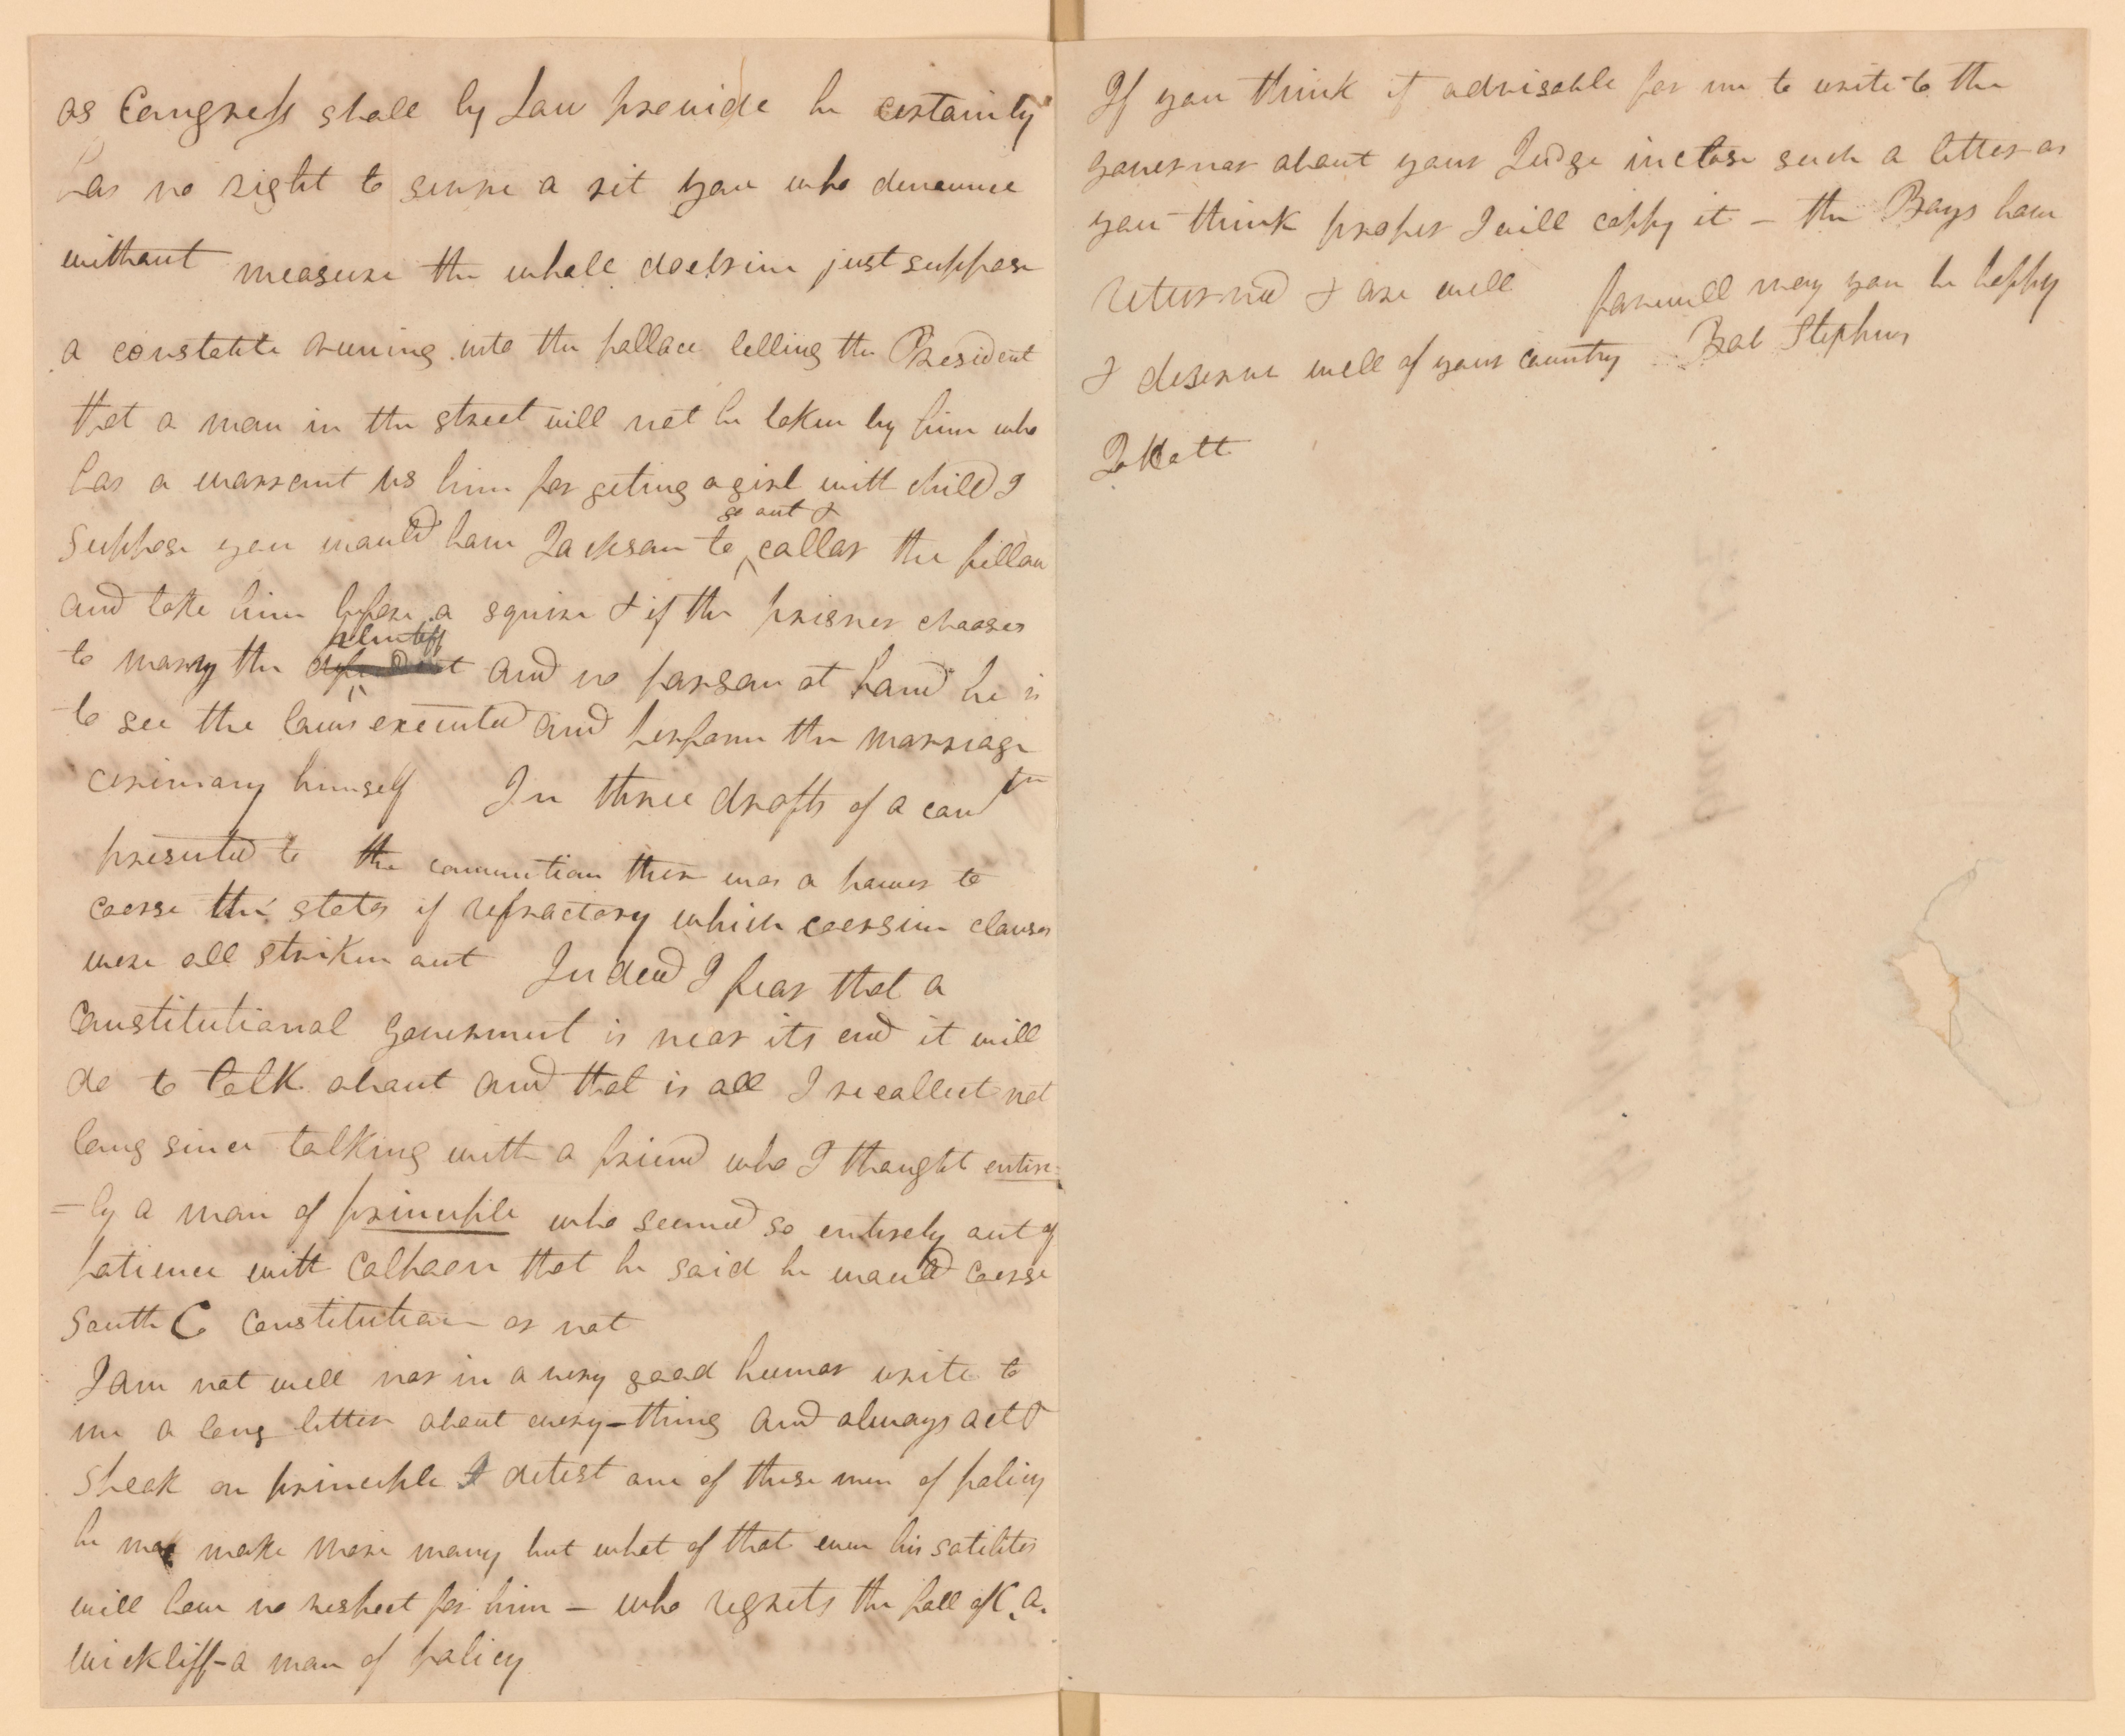 as Congress shall by Law provide he certainly
has no right to serve a rit you who denounce
without measure the whole doctrine just suppose
a constable runing into the pallace telling the President
that a man in the street will not be taken by him who
has a warrant vs him for geting a girl with child I
suppose you would have Jackson to go out & collar the fellow
and take him before a squire & if the prisner chooses
to marry the plentiff and no parson at hand he is
to see the laws executed and perform the marriage
cerimony himself In three drafts of a con tn
presented to the convention there was a power to
coerse the states if refractory which coersive clauses
were all striken out Indeed I fear that a
Constitutional goverment is near its end it will
do to talk about and that is all I recollect not
long since talking with a friend who I thought entire=
=ly a man of principle who seemed so entirely out of
patience with Calhoon that he said he would coerse
South C constitution or not
I am not well nor in a very good humor write to
me a long letter about every-thing and always act &
speak on principle I detest one of these men of policy
he may make more mony but what of that even his satilites
will have no respect for him - who regrets the fall of C. A.
Wickliff - a man of policy
If you think it advisable for me to write to the
governor about your Judge inclose such a letter as
you think proper I will coppy it - the Boys have
returned & are well farewell may you be happy
& deserve well of your country Bob Stephens
J. Holt